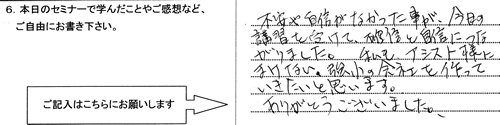 6. 本日のセミナーで学んだことやご感想など、
ご自由にお書き下さい。
ご記入はこちらにお願いします
不安や自信がなかった事が、今日の
講習を受けて、確信と自信につな
がりました。 私も イシスト様に
まけない。最小の会社を作って
いきたいと思います。
ありがとうございました。